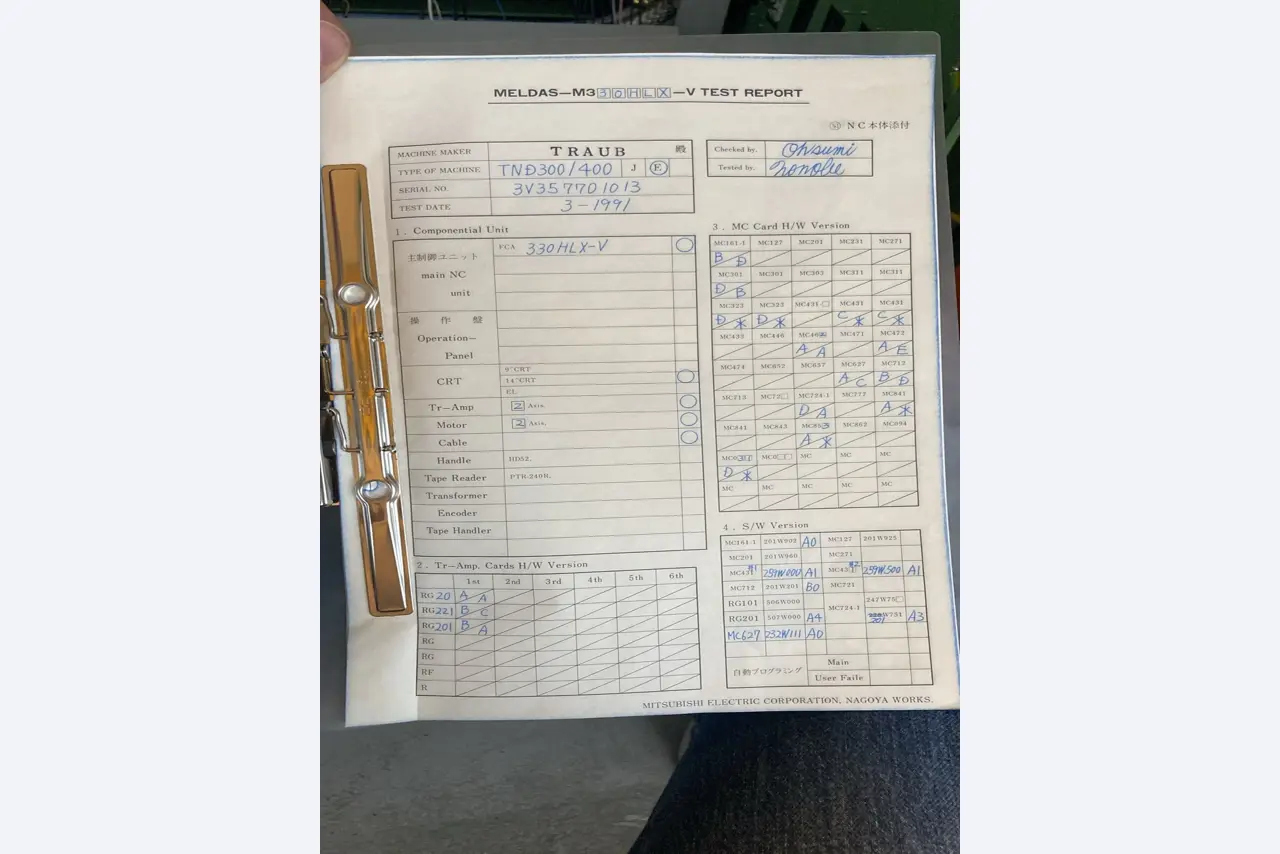 MELDAS—M330HLX—V TEST REPORT
NC本体添付
MACHINE MAKER TRAUB 殿
TYPE OF MACHINE TND300/400 J E
SERIAL NO. 3V357701013
TEST DATE 3-1991
Checked by. Ohsumi
Tested by.
1. Componential Unit
主制御ユニット FCA 330HLX-V
main NC
unit
操作盤
Operation-
Panel
CRT 9"CRT
14"CRT
EL
Tr-Amp 2 Axis.
Motor 2 Axis.
Cable
Handle HD52.
Tape Reader PTR-240R.
Transformer
Encoder
Tape Handler
2. Tr-Amp. Cards H/W Version
1st 2nd 3rd 4th 5th 6th
RG 20 A A
RG 221 B C
RG 201 B A
RG
RG
RF
R
3. MC Card H/W Version
MC161-1 MC127 MC201 MC231 MC271
B D
MC301 MC301 MC303 MC311 MC311
D B
MC323 MC323 MC421-□ MC431 MC431
D * D * C * C *
MC433 MC446 MC471 MC472
A A A E
MC474 MC652 MC657 MC637 MC712
A C B D
MC713 MC72□ MC724-1 MC772 MC841
D A A *
MC841 MC843 MC853 MC862 MC094
A *
MC MC MC
D *
MC MC MC MC MC
4. S/W Version
MC161-1 201W902 A0 MC127 201W925
MC201 201W960 MC271
MC431 #1 259W000 A1 MC431 #2 259W500 A1
MC712 201W201 B0 MC721
RG101 506W000 MC724-1 247W75□
RG201 507W000 A4 201W751 A3
MC627 232W111 A0
自動プログラミング Main
User Faile
MITSUBISHI ELECTRIC CORPORATION, NAGOYA WORKS.